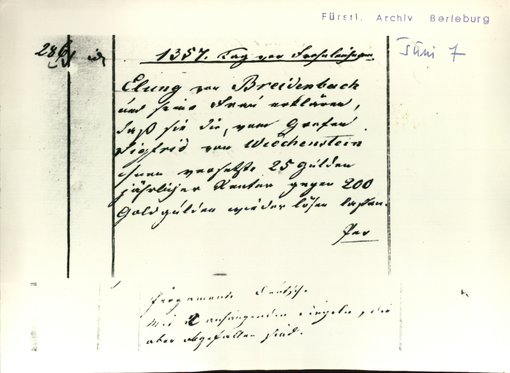 Fürstl. Archiv Berleburg
Juni 7
286
1357. Tag vor Frohnleichnam
Elung von Breidenbach
und seine Frau erklären,
daß sie die, vom Grafen
Sigfrid von Wittchenstein
ihnen versetzte 25 Gulden
jährlicher Renten gegen 200
Goldgulden wieder lösen lassen.
Pergament. Deutsch.
Mit 2 anhangenden Siegeln, die
aber abgefallen sind.